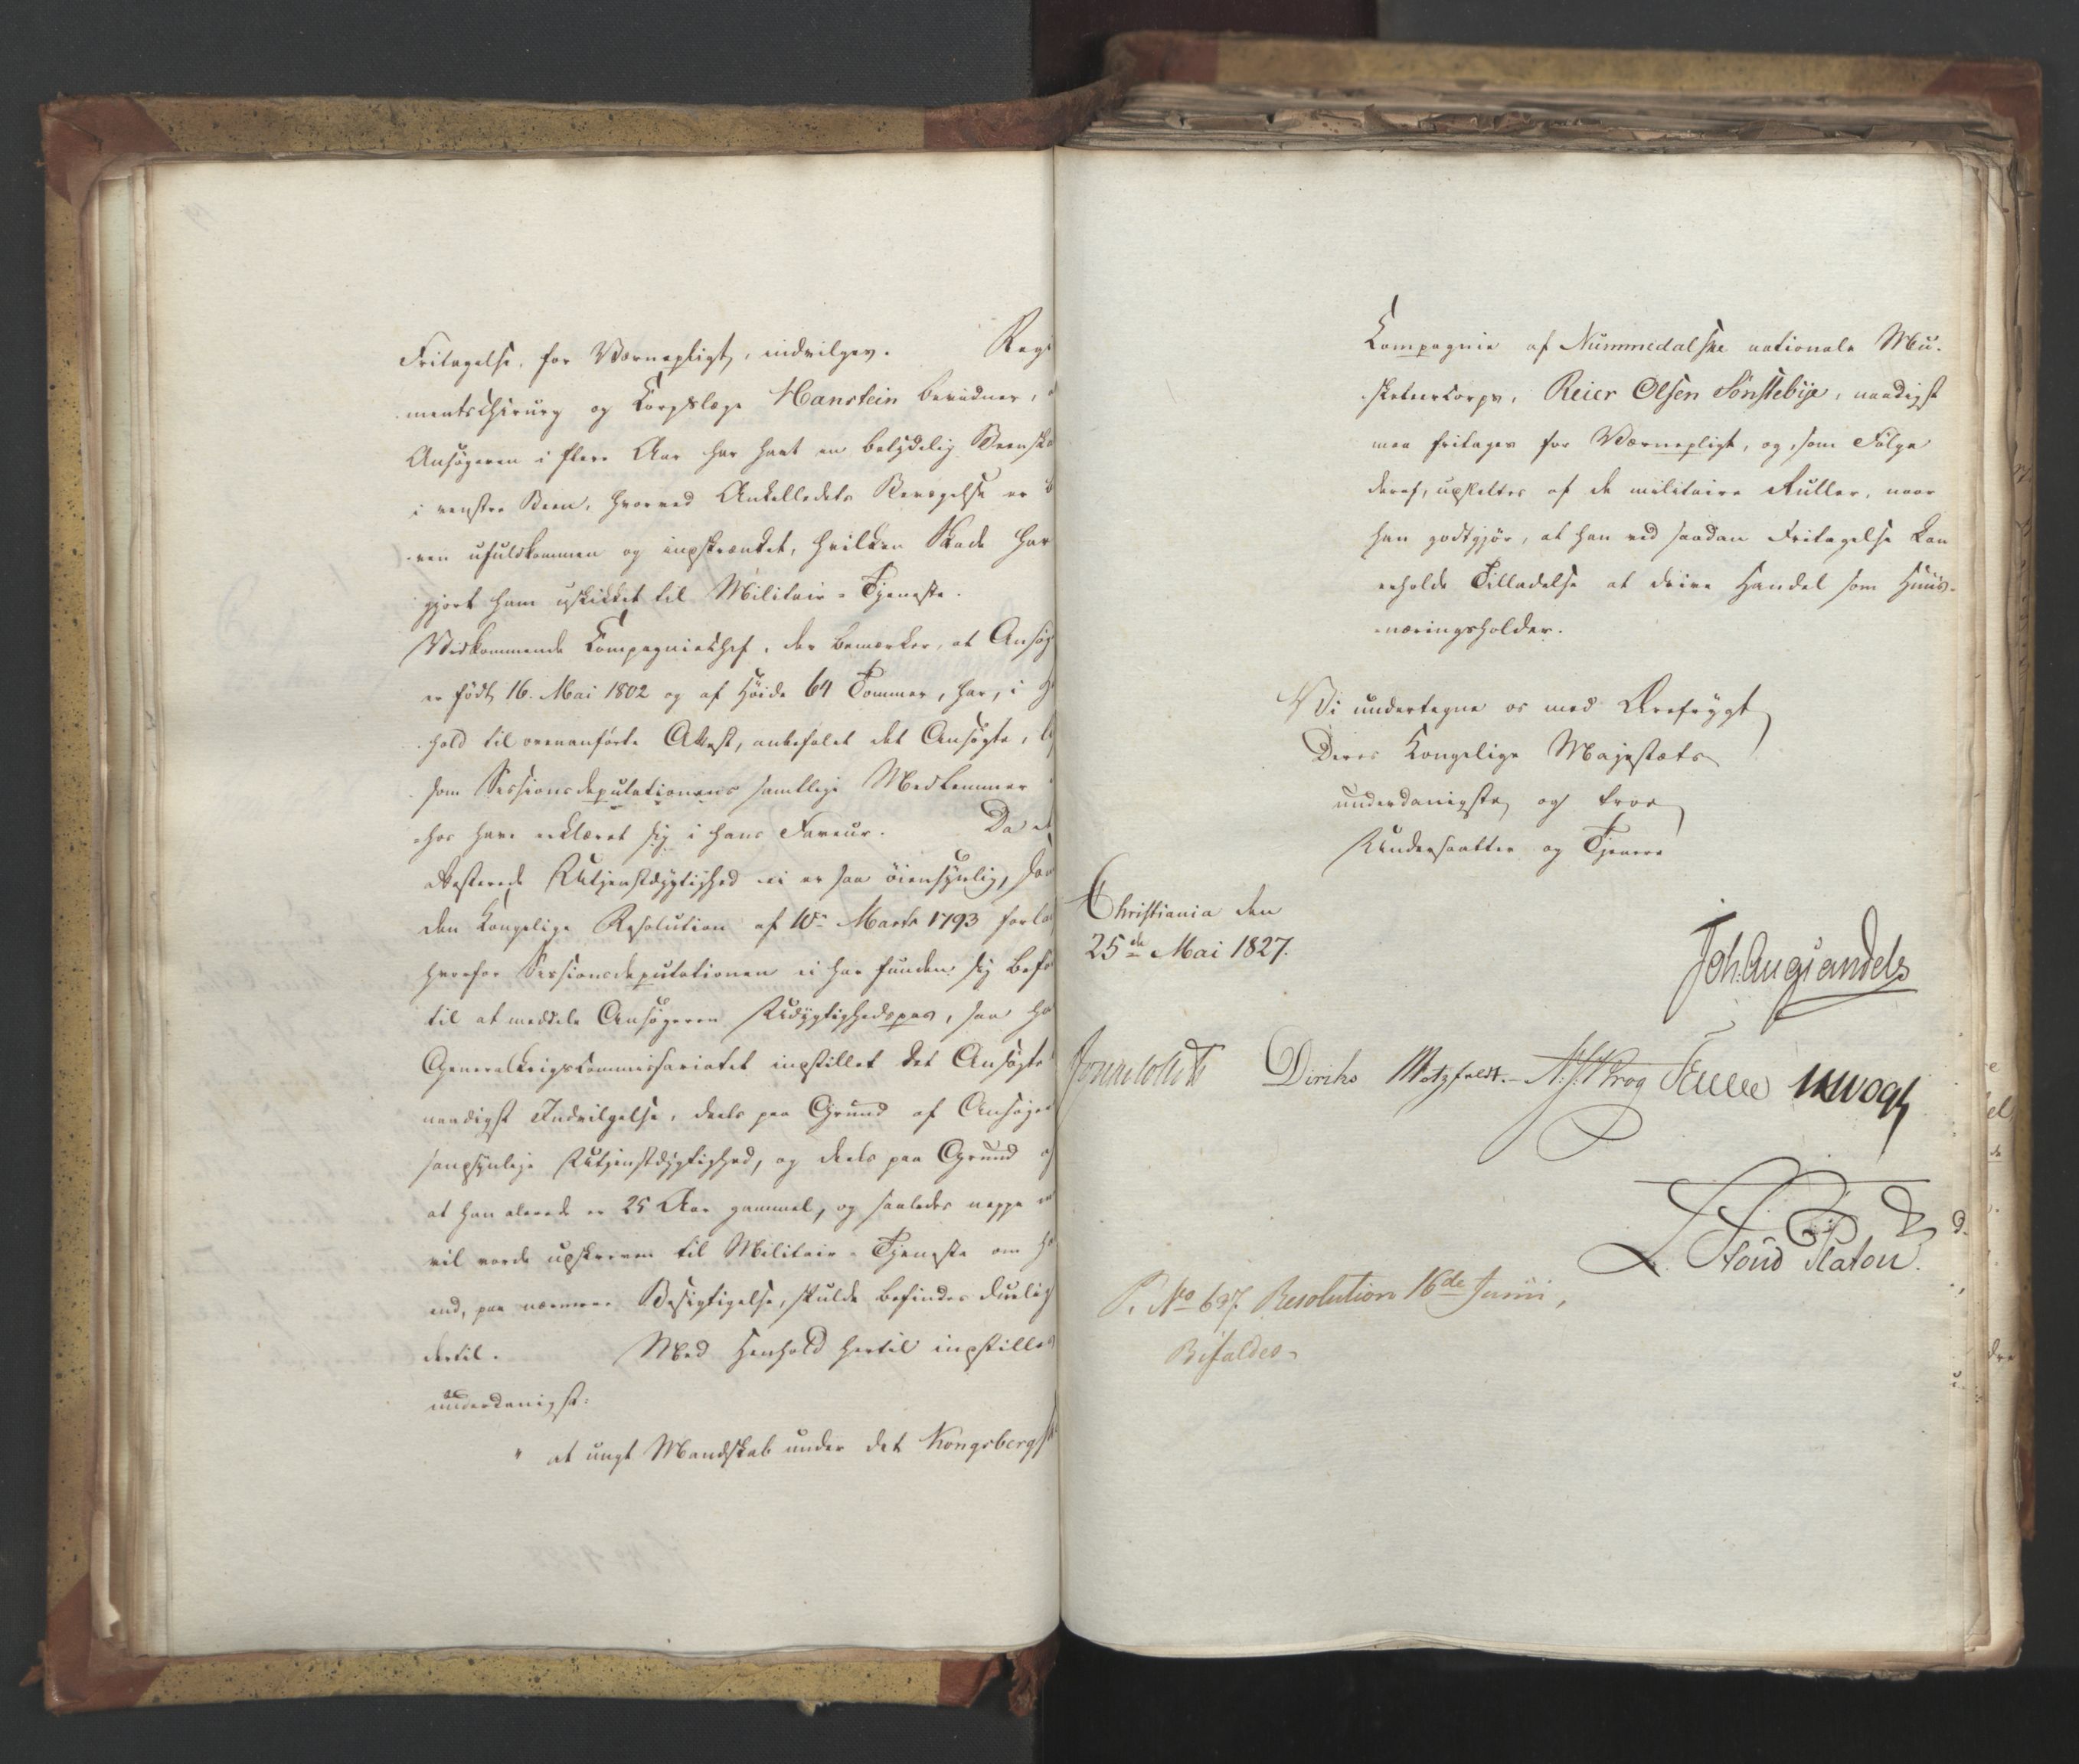 Fritagelse for Værnepligt, indvilges. Regi
mentschirurg og Corpslæge Hanstein bevidner,
Ansøgeren i flere Aar har havt en betydelig Beenska
i venstre Been, hvorved Ankelledets Bevægelse er b
ven ufuldkommen og inskrænket, hvilken Skade har
gjort ham uskikket til Militair-Tjeneste.
Vedkommende Compagniechef, der bemærker, at Ansøg
er født 16. Mai 1802 og af Høide 64 Tommer, har, i H
hold til ovenanførte Attest, anbefalet det Ansøgte, li
som Sessionsdeputationens samtlige Medlemmer
hos have erklæret sig i hans Faveur. Da
attesterede Utjenstdygtighed ei er saa øiensynlig, som
den Kongelige Resolution af 10de Marts 1793 forla
hvorfor Sessionsdeputationen ei har funden sig beføi
til at meddele Ansøgeren Udygtighedspas, saa ha
Generalkrigscommissariatet instillet det Ansøgte
naadigst Indvilgelse, deels paa Grund af Ansøger
sandsynlige Utjenstdygtighed, og deels paa Grund af
at han alerede er 25 Aar gammel, og saaledes neppe
vil vorde udskreven til Militair-Tjeneste om ha
end, paa nærmere Besigtigelse, skulde befindes duelig
dertil. Med Henhold hertil instilles
underdanigst:
" at ungt Mandskab under det Kongsbergsk
Compagnie af Nummedalske nationale Mu-
sketeercorps, Reier Olsen Sønstebye, naadigst
maa fritages for Værnepligt, og, som Følge
deraf, udslettes af de militaire Ruller, naar
han godtgjør, at han ved saadan Fritagelse kan
erholde Tilladelse at drive Handel som Huus-
næringsholder.
Vi undertegne os med Ærefrygt
Deres Kongelige Majestæts
underdanigste og troe
Undersaatter og Tjenere
Christiania den
25de Mai 1827.
Joh. Aug Sandels
Sommerhielm Diriks Motzfeldt. Krog Fasting Vogt
Foss Platou.
P. No 697. Resolution 16de Junii,
Bifaldes